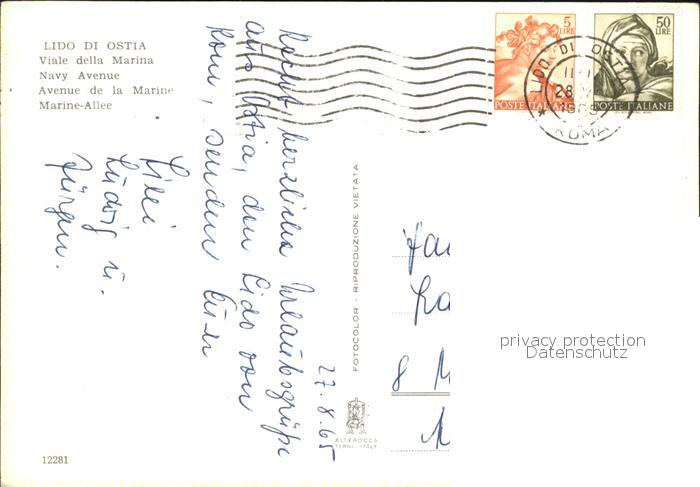 LIDO DI OSTIA
Viale della Marina
Navy Avenue
Avenue de la Marine
Marine-Allee
5
LIRE
POSTE ITALIANE
50
LIRE
POSTE ITALIANE
LIDO DI OSTIA
28
ROMA
27.8.65
Recht herzliche Urlaubsgrüße
aus Ostia, den Lido von
Rom, senden Euch
Lilli
Ludwig u.
Jürgen.
FOTOCOLOR - RIPRODUZIONE VIETATA
ALTEROCCA
TERNI - ITALY
8 M
privacy protection
Datenschutz
12281